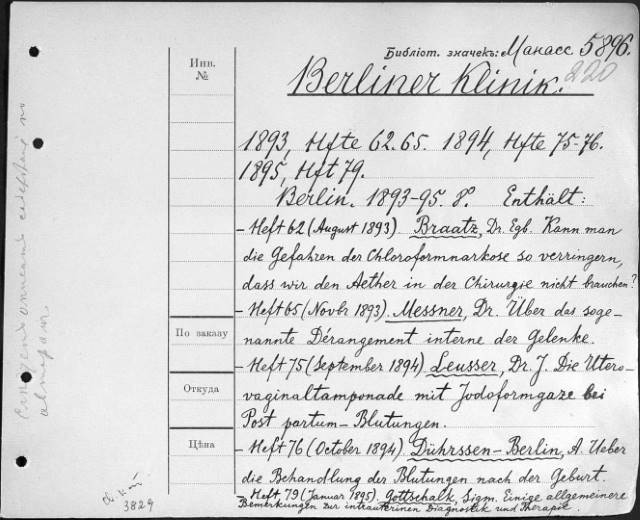 Библіот. значекъ: Манасс 5896.
220
Berliner Klinik.
Инв.
№
1893, Hfte 62.65. 1894, Hfte 75-76.
1895, Hft 79.
Berlin. 1893-95. 8°. Enthält:
- Heft 62 (August 1893). Braatz, Dr. Egb. Kann man
die Gefahren der Chloroformnarkose so verringern,
dass wir den Aether in der Chirurgie nicht brauchen?
- Heft 65 (Novbr 1893). Messner, Dr. Über das soge-
nannte Dérangement interne der Gelenke.
По заказу
- Heft 75 (September 1894) Leusser, Dr. J. Die Utero-
vaginaltamponade mit Jodoformgaze bei
Post partum-Blutungen.
Откуда
- Heft 76 (October 1894) Dührssen-Berlin, A. Ueber
die Behandlung der Blutungen nach der Geburt.
Цѣна
- Heft 79 (Januar 1895). Gottschalk, Sigm. Einige allgemeinere
Bemerkungen zur intrauterinen Diagnostik und Therapie.
3829